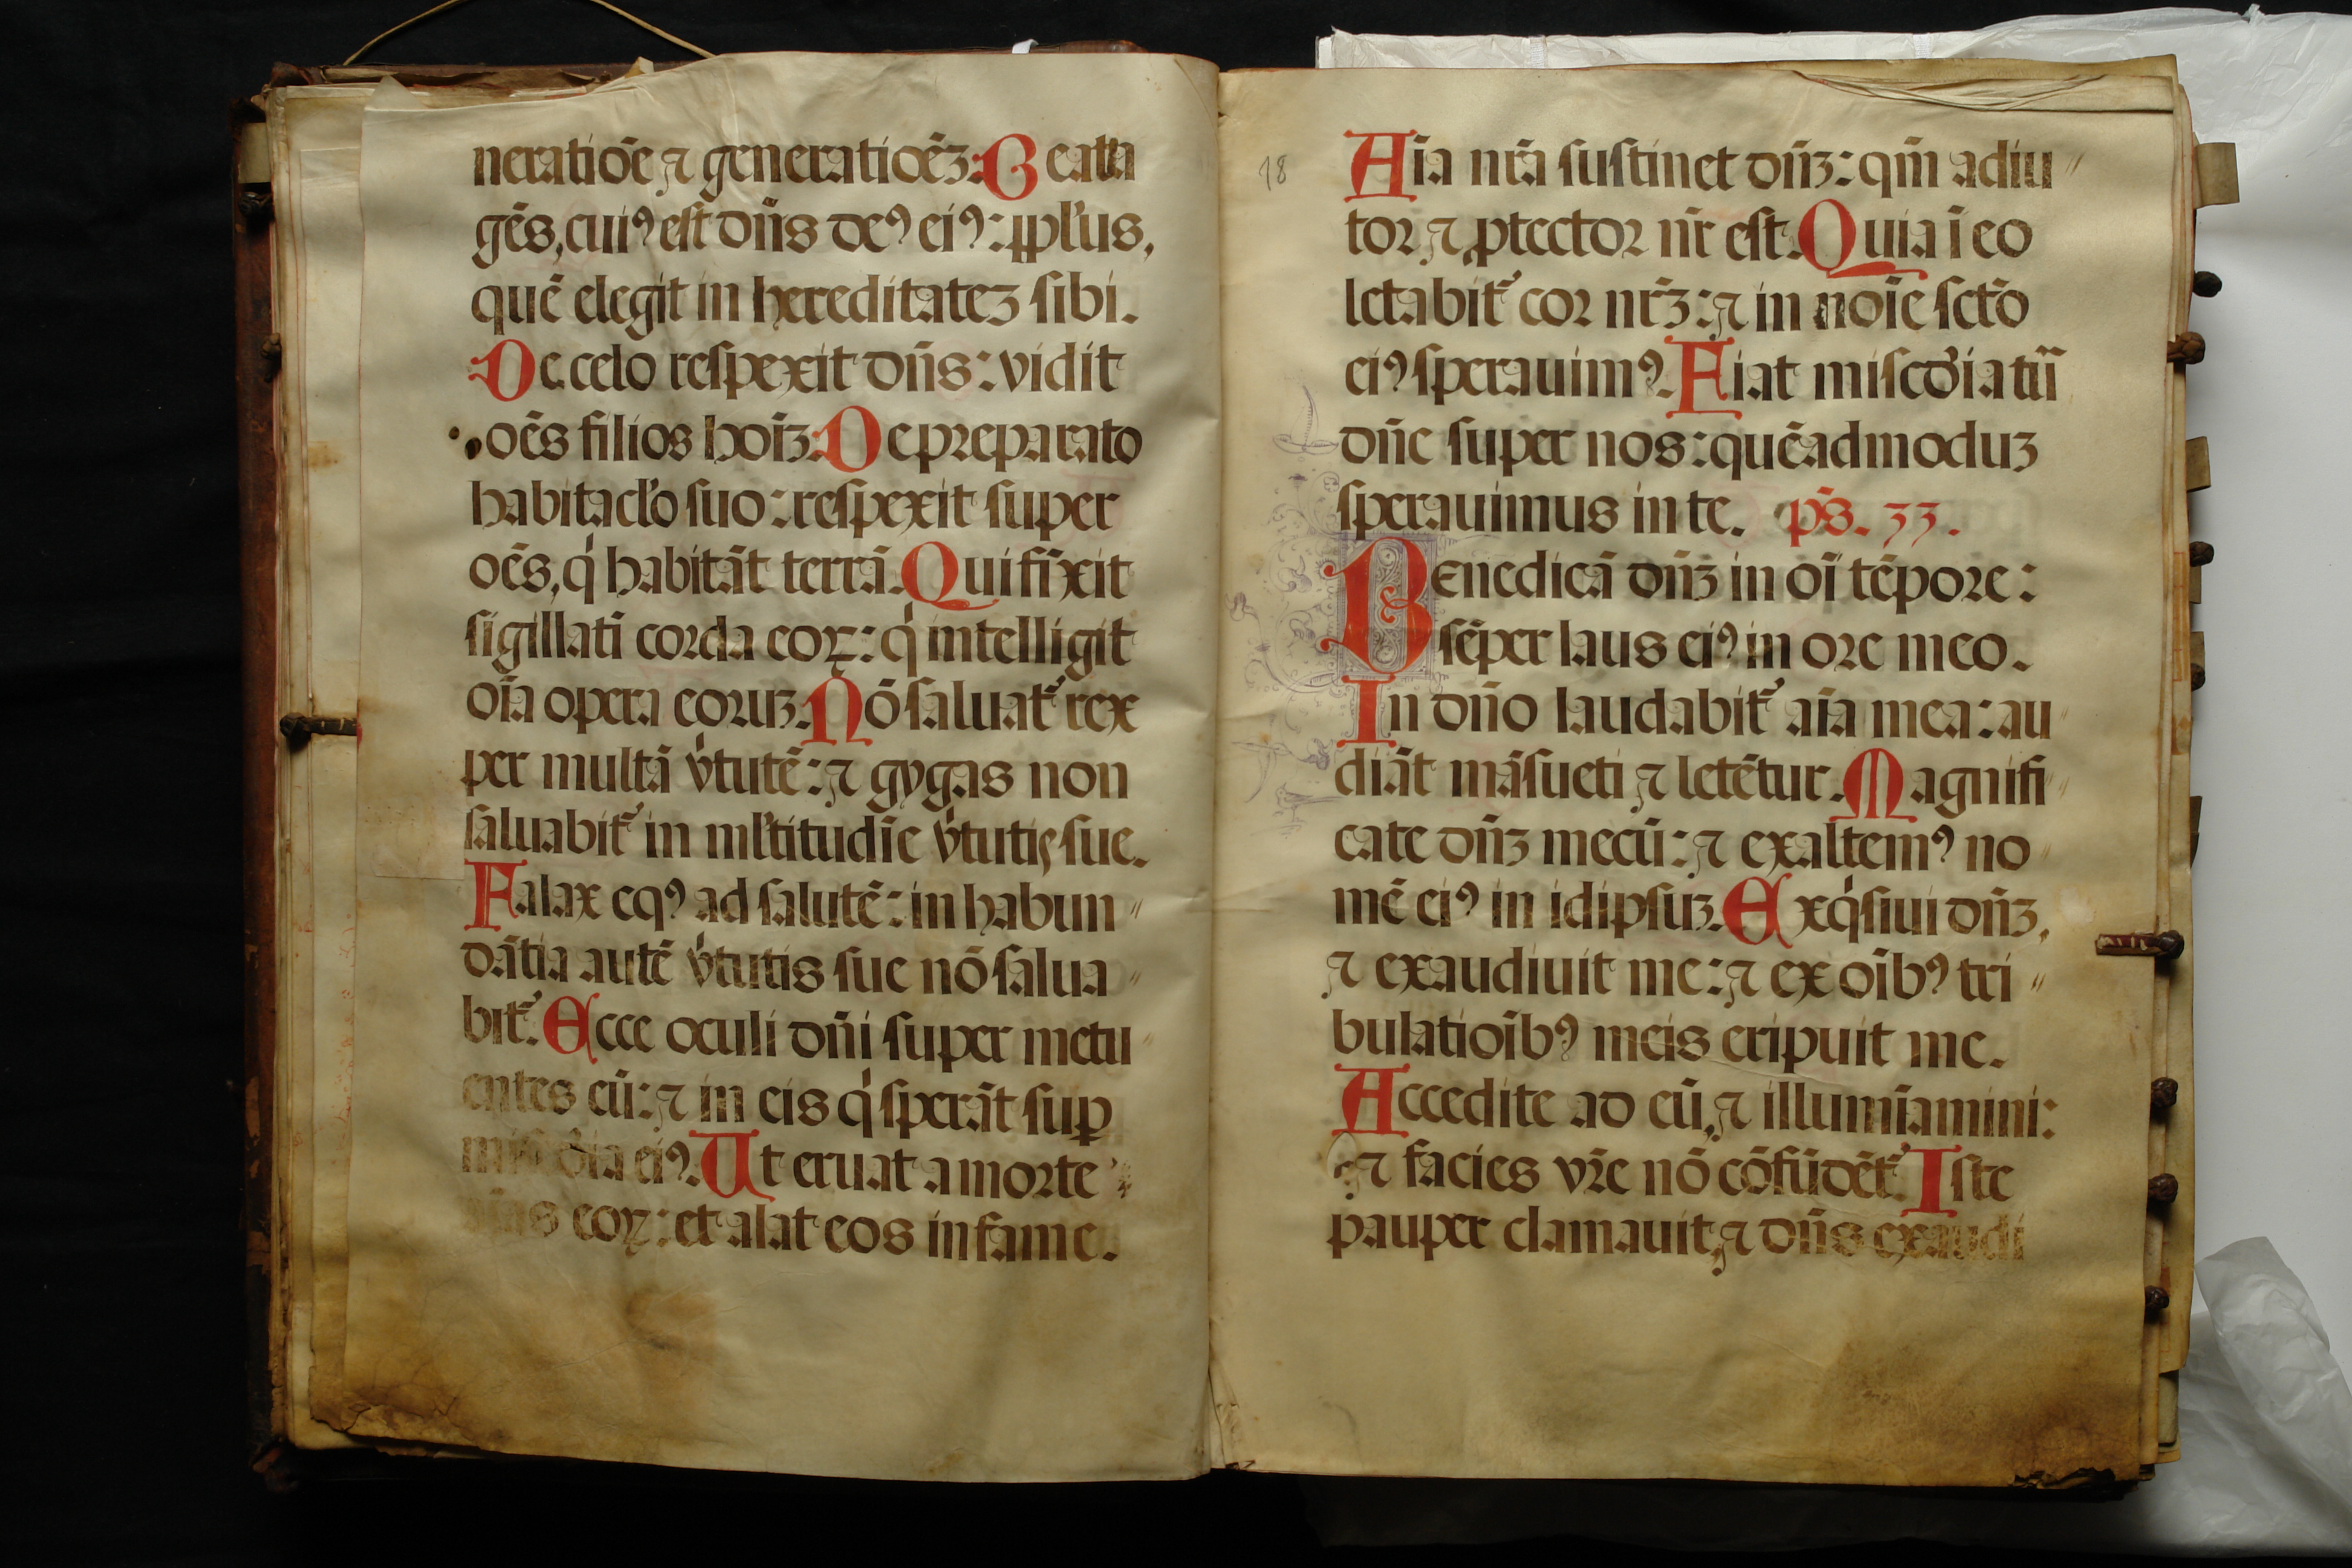 neratiōe ⁊ generatiōeꝫ: Beata
gēs, cuiꝰ est dn̄s deꝰ eiꝰ: ppl'us,
quē elegit in hereditateꝫ sibi.
De celo respexit dn̄s: vidit
oēs filios hoīꝫ. De preparato
habitacl'o suo: respexit super
oēs, qͥ habitāt terrā. Qui fīxit
sigillatī corda eoꝝ: qͥ intelligit
oīa opera eoruꝫ. Nō saluat᷑ rex
per multā vͥtutē: ⁊ gygas non
saluabit᷑ in ml'titudīe vͥtutis sue.
Falax eqꝰ ad salutē: in habun〃
dātia autē vͥtutis sue nō salua〃
bit᷑. Ecce oculi dn̄i super metu〃
entes eū: ⁊ in eis qͥ sperāt suꝑ
mis̄cdia eiꝰ. Ut eruat a morte
aīas eoꝝ: et alat eos in fame.
18
Aīa nr̄a sustinet dn̄ꝫ: qm̄ adiu〃
tor ⁊ ꝓtector nr̄ est. Quia ī eo
letabit᷑ cor nr̄ꝫ: ⁊ in noīe sctō
eiꝰ sperauimꝰ. Fiat miscd̄ia tua
dn̄e super nos: quēadmoduꝫ
sperauimus in te. ps̄. 33.
Benedicā dn̄ꝫ in oī tēpore:
sēper laus eiꝰ in ore meo.
In dn̄o laudabit᷑ aīa mea: au
diāt māsueti ⁊ letētur. Magnifi〃
cate dn̄ꝫ mecū: ⁊ exaltemꝰ no〃
mē eiꝰ in idipsuꝫ. Exqͥsiui dn̄ꝫ,
⁊ exaudiuit me: ⁊ ex oībꝰ tri〃
bulatioībꝰ meis eripuit me.
Accedite ad eū, ⁊ illumīamini:
⁊ facies vr̄e nō cōfūdēt᷑. Iste
pauper clamauit, ⁊ dn̄s exaudi